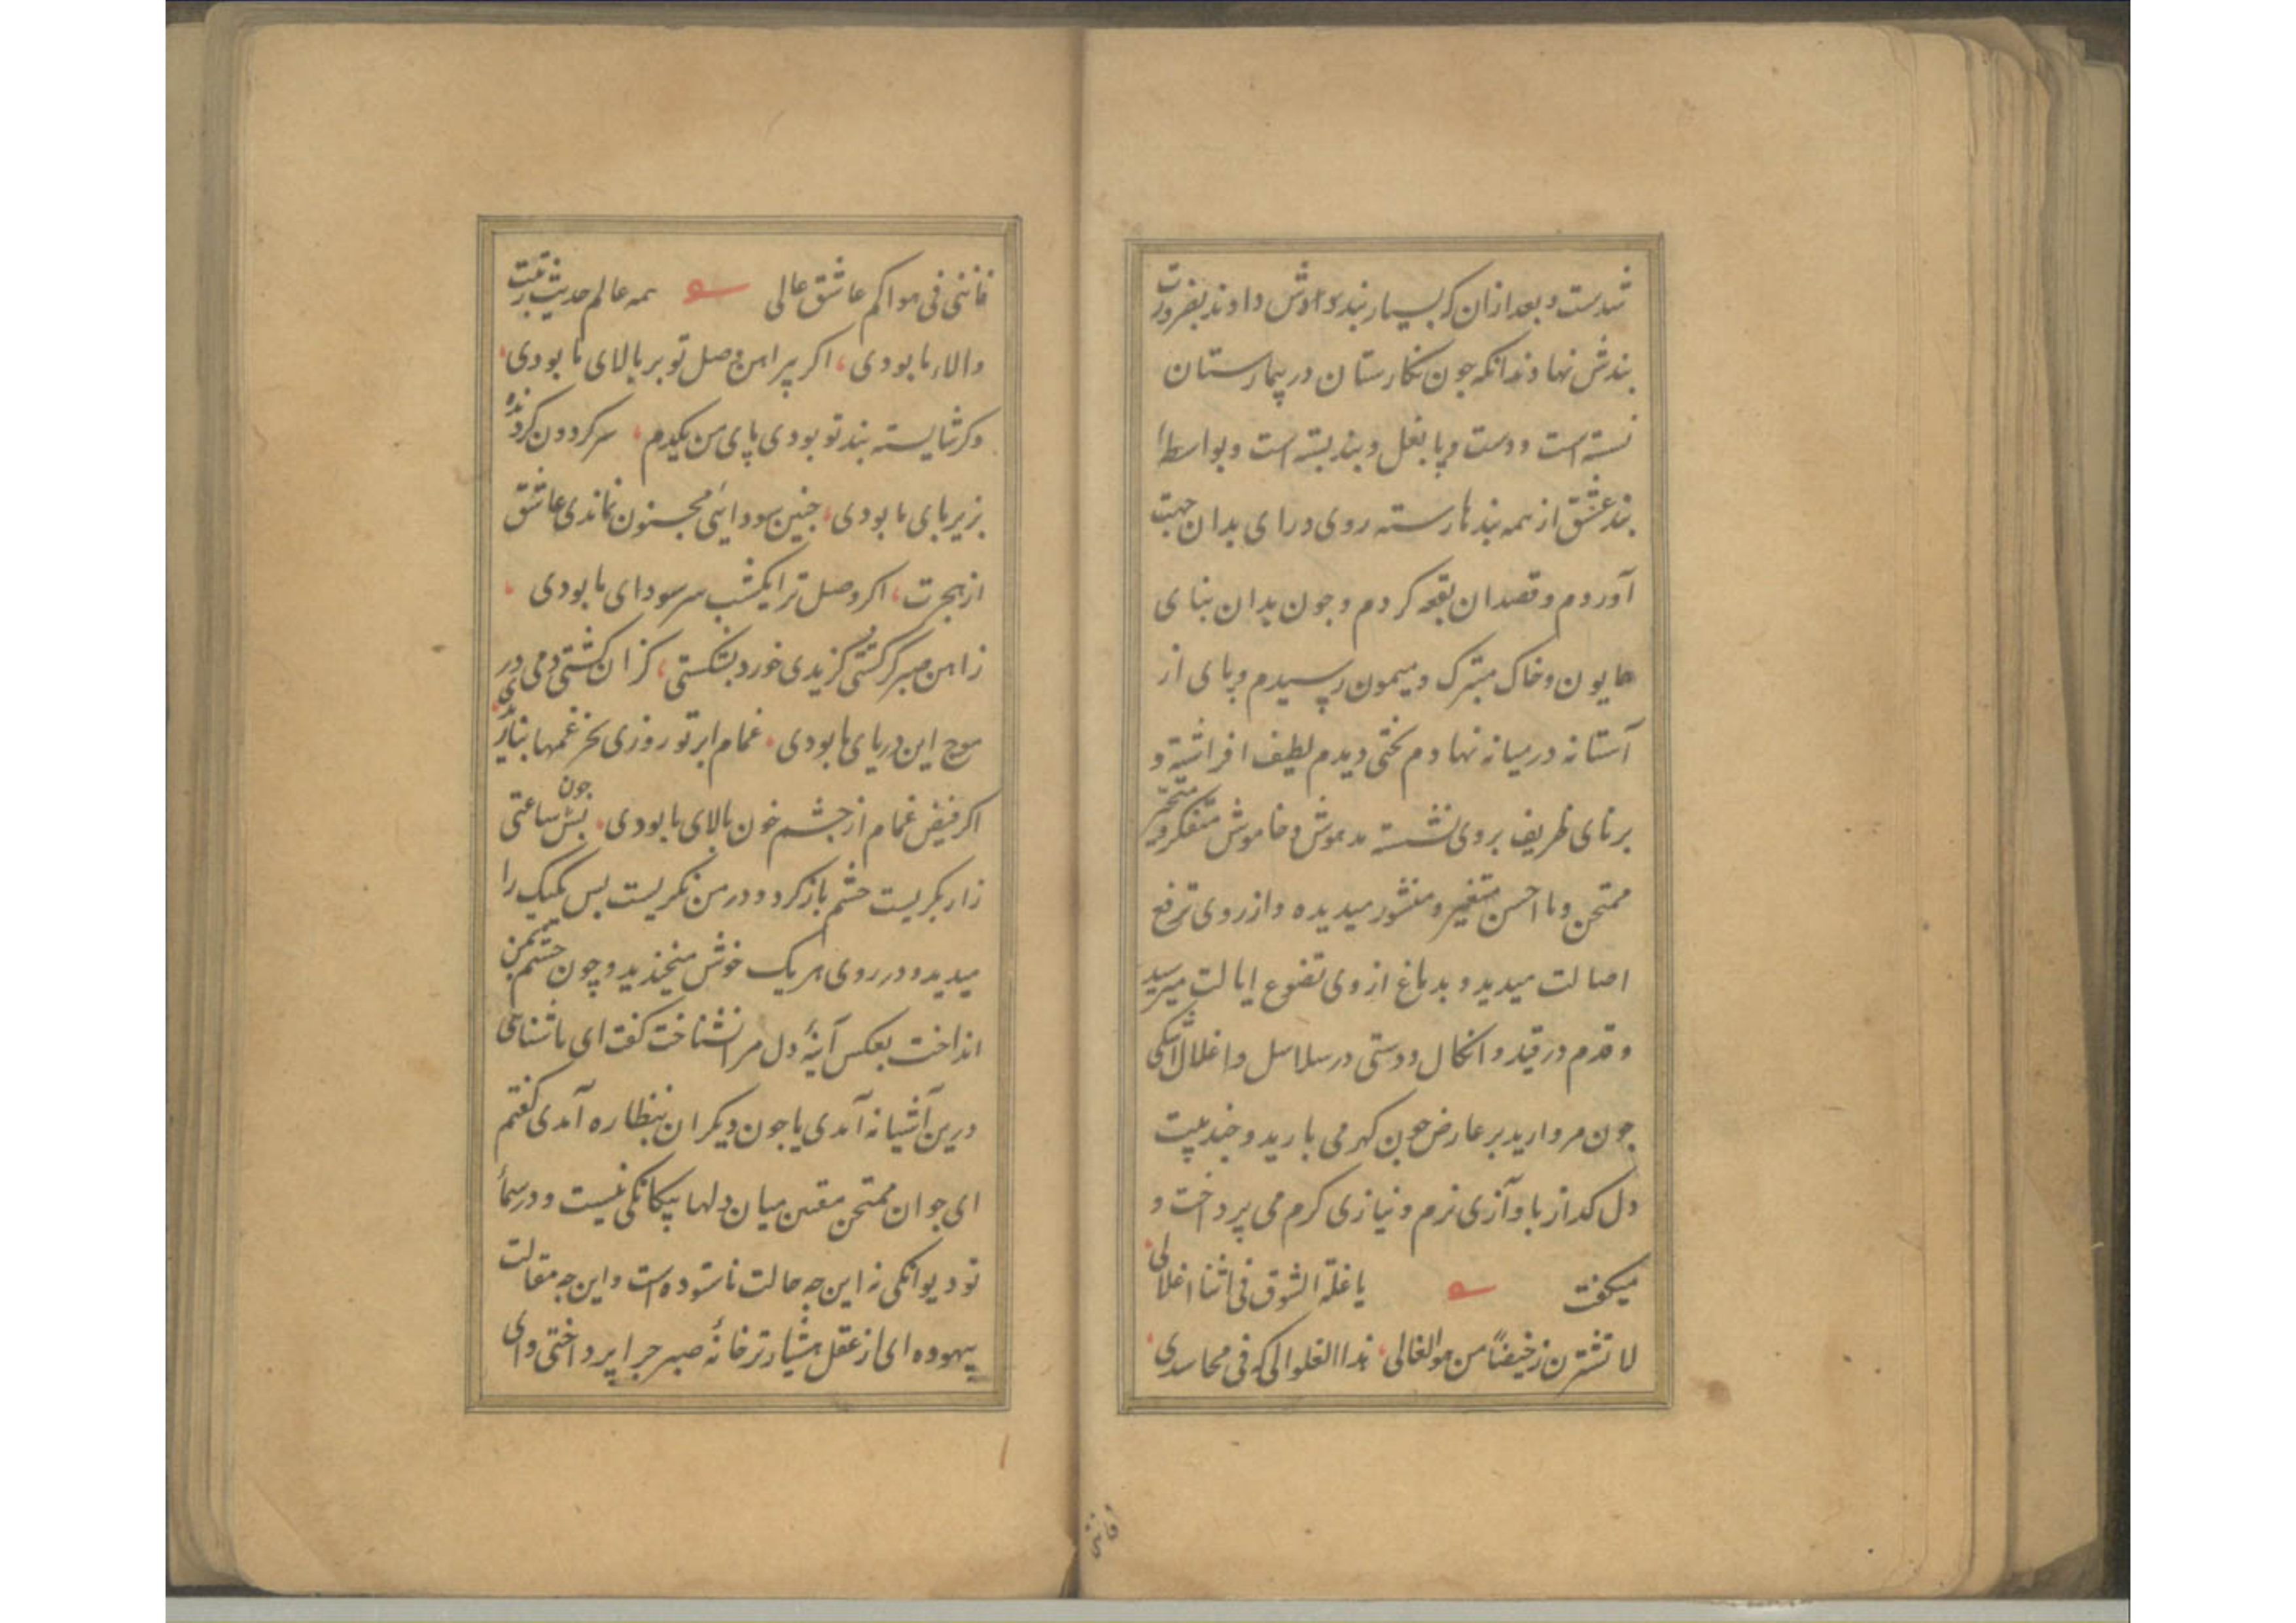 شدست و بعد ازان که بسیار بند و اوش دادند بضرورت
بندش نهادند انکه جون نکارستان در بیمارستان
نشسته است و دست و پا بغل و بند بسته است و بواسطه
بند عشق از همه بندها رسته روی و رای بدان جهت
آوردم و قصد ان بقعه کردم و جون بدان بنای
همایون و خاک متبرک و میمون رسیدم و پای از
آستانه در میانه نهادم تختی دیدم لطیف افراشته و
برنای ظریف بروی نشسته مدهوش و خاموش متفکر و متحیر
ممتحن و با احسن متغیر و منشور میدیده و از روی ترفع
اصالت میدید و بدماغ از وی تضوع ایالت میرسید
و قدم در قید و انکال و دستی در سلاسل و اغلال اشکی
جون مروارید بر عارض جون کهر می بارید و جند بیت
دل کداز با وآزی نرم و نیازی کرم می پرداخت و
میکفت یا غلة الشوق فی اثنا اغلالی
لا تشترن رخیضاً من هو الغالی ندا الغلو الی که فی محاسدی
فاننی
فاننی فی هواکم عاشق عالی همه عالم حدیث رتبت
والاء ما بودی اکر پیراهن وصل تو بر بالای ما بودی
وکر شایسته بند تو بودی پای من یکدم سر کردون کردنده
بزیر پای ما بودی جنین سودائی مجنون نماندی عاشق
از هجرت اکر وصل ترا یکشب سر سودای ما بودی
زاهن صبر کر کشتی کزیدی خورد بشکستی کزان کشتی دمی در
موج این دریای ما بودی غمام ابر تو روزی بخر غمها بناریدی
اکر فیض غمام از جشم خون بالای ما بودی بس جون ساعتی
زار بکریست جشم باز کرد و در من نکریست بس یکیک را
میدید و در روی هر یک خوش میخندید و چون چشم بمن
انداخت بعکس آینهٔ دل مرا نشناخت کفت ای باشناختی
درین آشیانه آمدی یا جون دیکران بنظاره آمدی کفتم
ای جوان ممتحن مفتن میان دلها بیکانکی نیست و در سمأ
تو دیوانکی نه این جه حالت ناستوده است و این جه مقالت
بیهوده ای از عقل هشیارتر خانهٔ صبر جرا پرداختی و ای